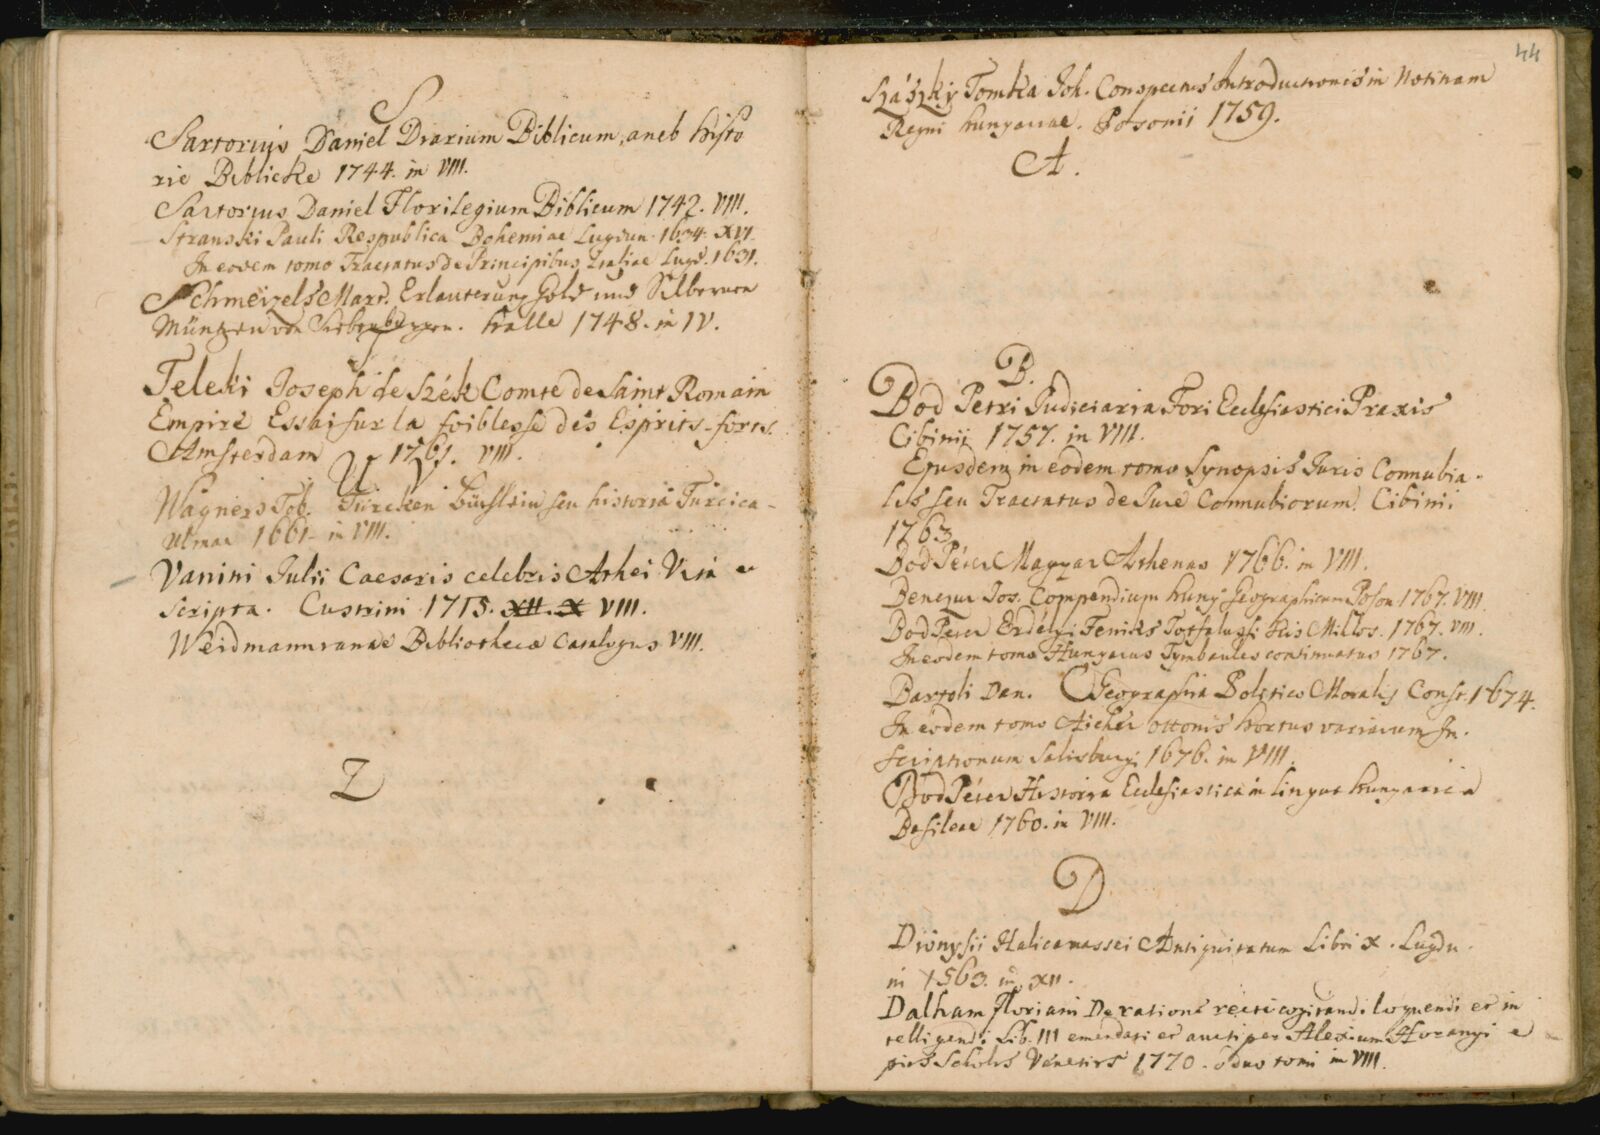 S
Sartorius Daniel Diarium Biblicum, aneb histo
rie Biblicke 1744. in VIII.
Sartorius Daniel Florilegium Biblicum 1742. VIII.
Stranski Pauli Respublica Bohemiae Lugdun. 1634. XVI.
In eodem tomo Tractatus de Principibus Italiae Lugd. 1631.
Schmeizels Mart. Erlauterung Gold und Silbernen
Müntzen von Siebenburgen. Halle 1748. in IV.
T
Teleki Joseph de Szék Comte de Saint Romain
Empire Essai sur la foiblesse des Esprits-forts.
Amsterdam 1761. VIII.
U V
Wagners Tob. Türcken Büchlein seu historia Turcica
Ulmae 1661. in VIII.
Vanini Julii Caesaris celebris Athei Vita et
scripta. Custrini 1715. XII. X VIII.
Weidmannianae Bibliothecae Catalogus VIII.
Z
44
Szászky Tomka Joh. Conspectus Introductionis in Notitiam
Regni hungariae. Posonii 1759.
A.
B.
Bod Petri Judiciaria Fori Ecclesiastici Praxis
Cibinii 1757. in VIII.
Ejusdem in eodem tomo Synopsis Juris Connubia-
lis seu Tractatus de Jure Connubiorum. Cibinii
1763
Bod Péter Magyar Athenas 1766. in VIII.
Benczur Jos. Compendium hung. geographicum Poson. 1767. VIII.
Bod Péter Erdélyi Feniks Totfalusi Kis Miklos. 1767. VIII.
In eodem tomo Hungarus Tymbaules continuatus 1767.
Bartoli Dan. Geographia Politico Moralis Const. 1674.
In eodem tomo Aicher Ottonis hortus variarum In-
scriptionum Salisburgi 1676. in VIII.
Bod Péter Historia Ecclesiastica in lingua hungarica
Basileae 1760. in VIII.
D
Dionysii Halicarnassei Antiquitatum Libri X. Lugdu-
ni 1563. in XII.
Dalham Floriani De ratione recte cogitandi loquendi et in
telligendi Lib. III emendati et aucti per Alexium Horanyi e
piis Scholis Venetiis 1770. duo tomi in VIII.